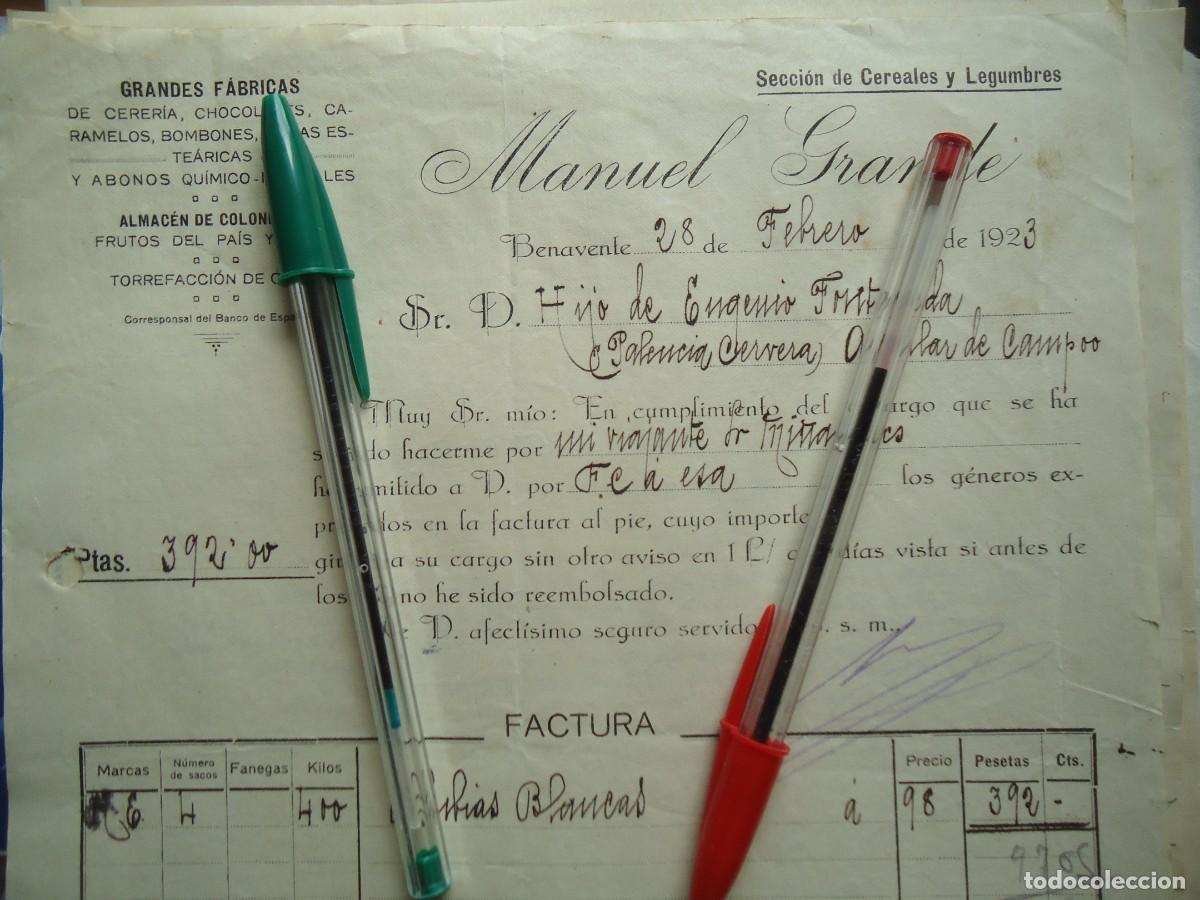 GRANDES FÁBRICAS
DE CERERÍA, CHOCOLATES, CA-
RAMELOS, BOMBONES, ES-
TEÁRICAS
Y ABONOS QUÍMICO-
ALMACÉN DE
FRUTOS DEL PAÍS Y
TORREFACCIÓN DE
Corresponsal del Banco de España
Sección de Cereales y Legumbres
Manuel Grande
Benavente 28 de Febrero de 1923
Sr. D. Hijo de Eugenio
(Palencia Cervera) Aguilar de Campoo
Muy Sr. mío: En cumplimiento del encargo que se ha
servido hacerme por mi viajante Sr
he remitido a V. por F.C á esa los géneros ex-
presados en la factura al pie, cuyo importe
Ptas. 392'00
a su cargo sin otro aviso en 1 L/ días vista si antes de
los no he sido reembolsado.
De V. afectísimo seguro servidor s. m.,
FACTURA
Marcas Número de sacos Fanegas Kilos Precio Pesetas Cts.
4 400 Alubias Blancas á 98 392 -
todocoleccion